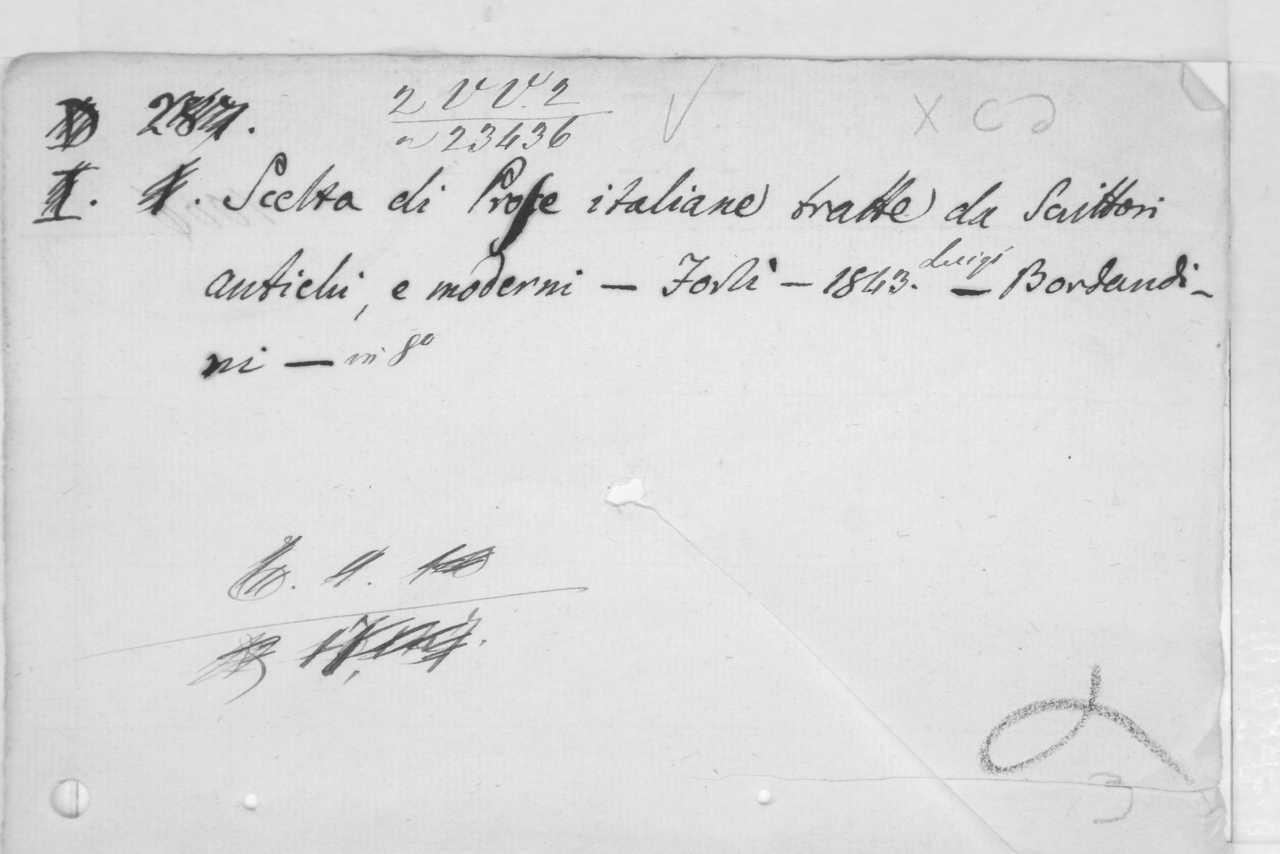 2 V V. 2
n 23436
X C
Scelta di Prose italiane tratte da Scrittori
antichi, e moderni — Forlì — 1843. — Luigi Bordandi-
ni — in 8º
3